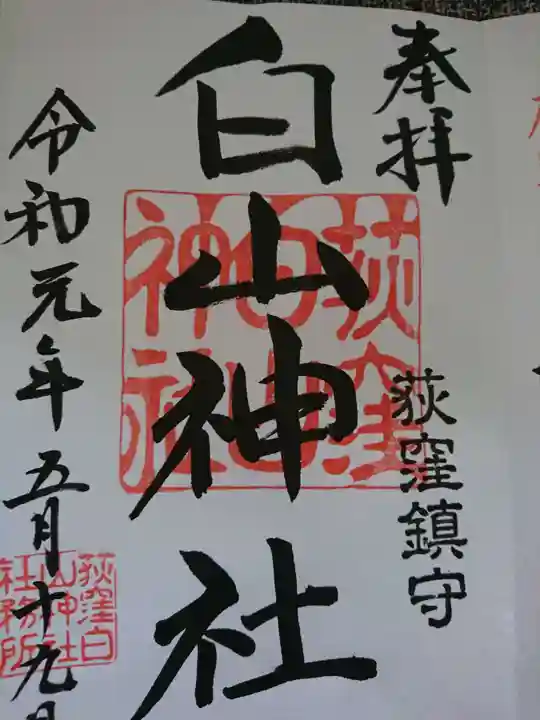 奉拝
荻窪鎮守
白山神社
荻窪
白山
神社
令和元年五月十九日
荻窪白
山神社
社務所